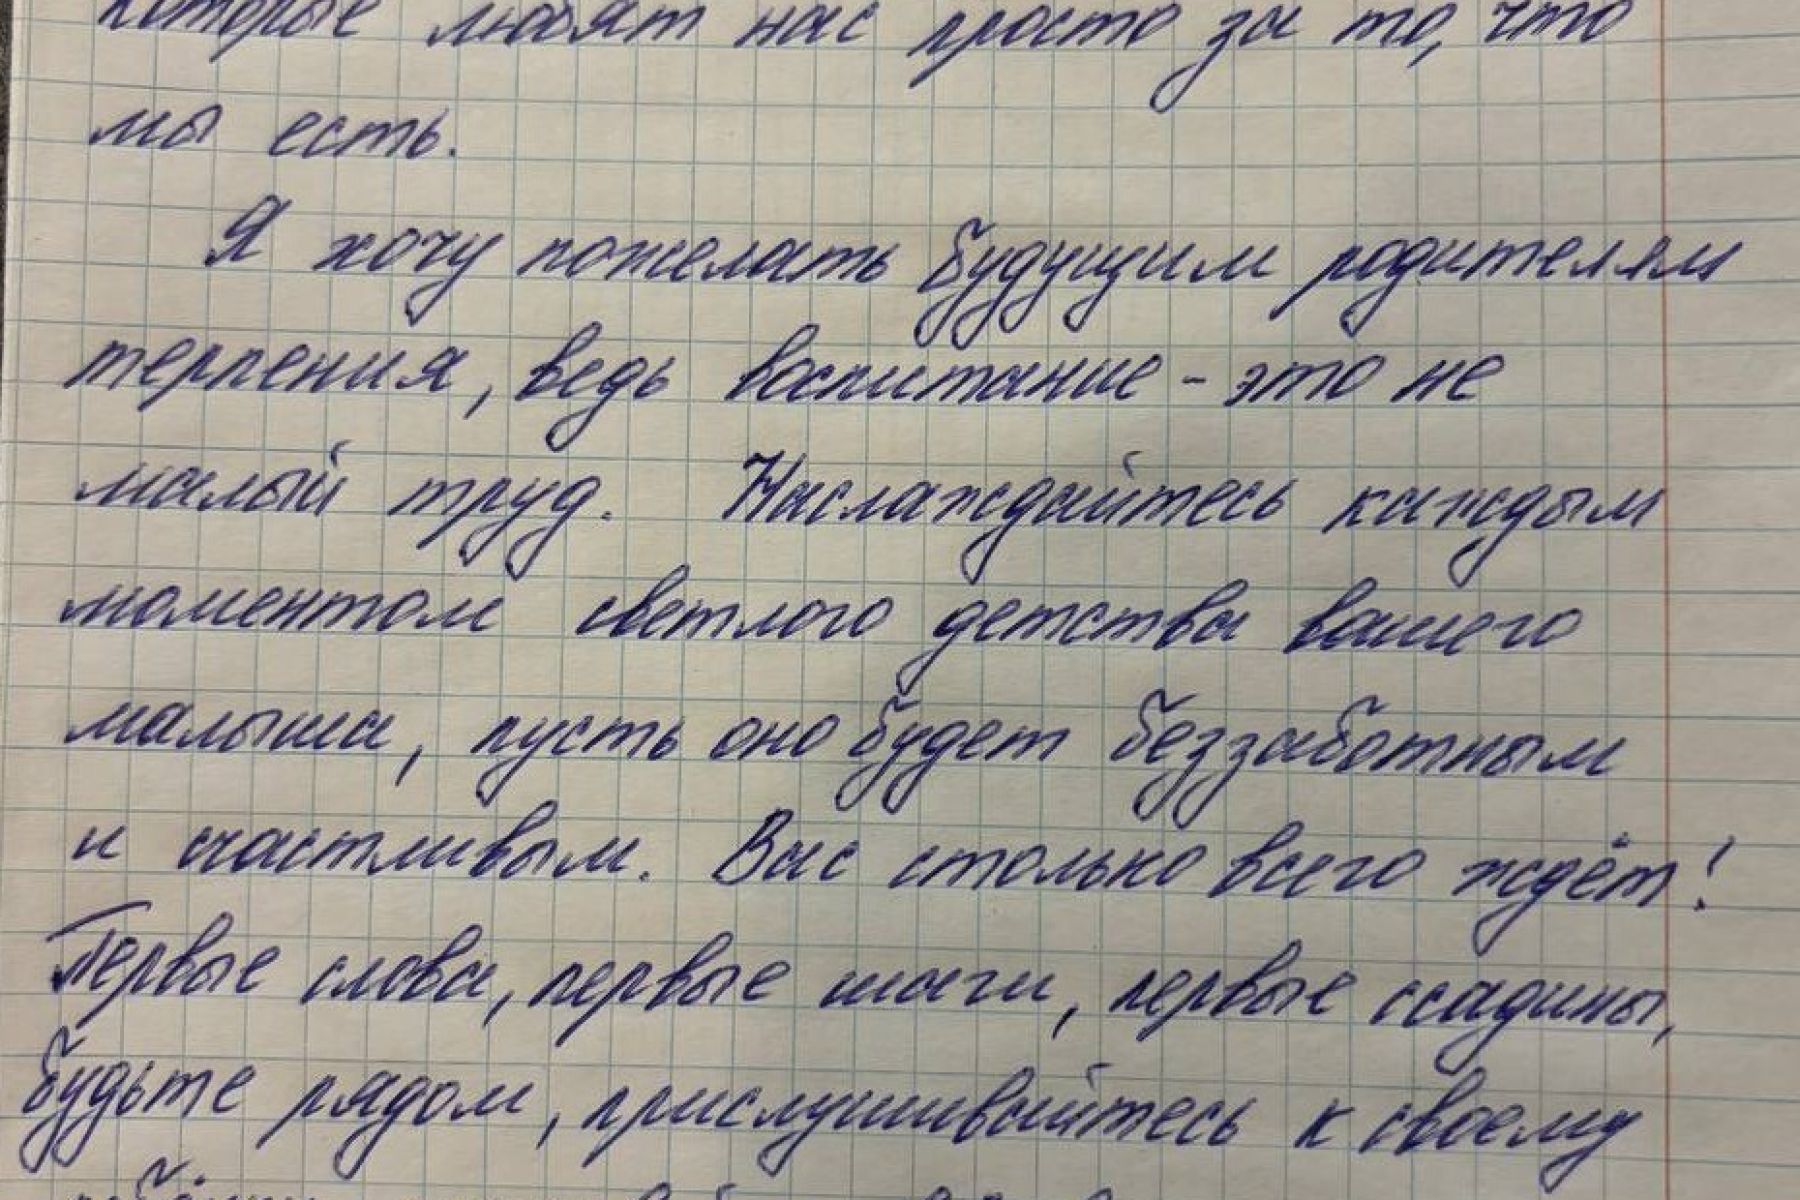 которые любят нас просто за то, что
мы есть.
Я хочу пожелать будущим родителям
терпения, ведь воспитание - это не
малый труд. Наслаждайтесь каждым
моментом светлого детства вашего
малыша, пусть оно будет беззаботным
и счастливым. Вас столько всего ждёт!
Первые слова, первые шаги, первые ссадины,
будьте рядом, прислушивайтесь к своему